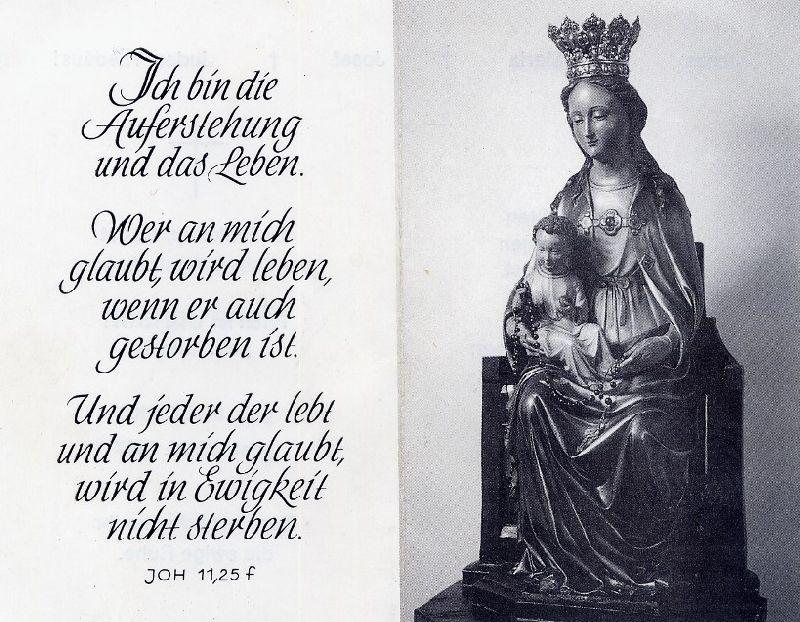 Ich bin die
Auferstehung
und das Leben.
Wer an mich
glaubt, wird leben,
wenn er auch
gestorben ist.
Und jeder der lebt
und an mich glaubt,
wird in Ewigkeit
nicht sterben.
JOH 11,25 f